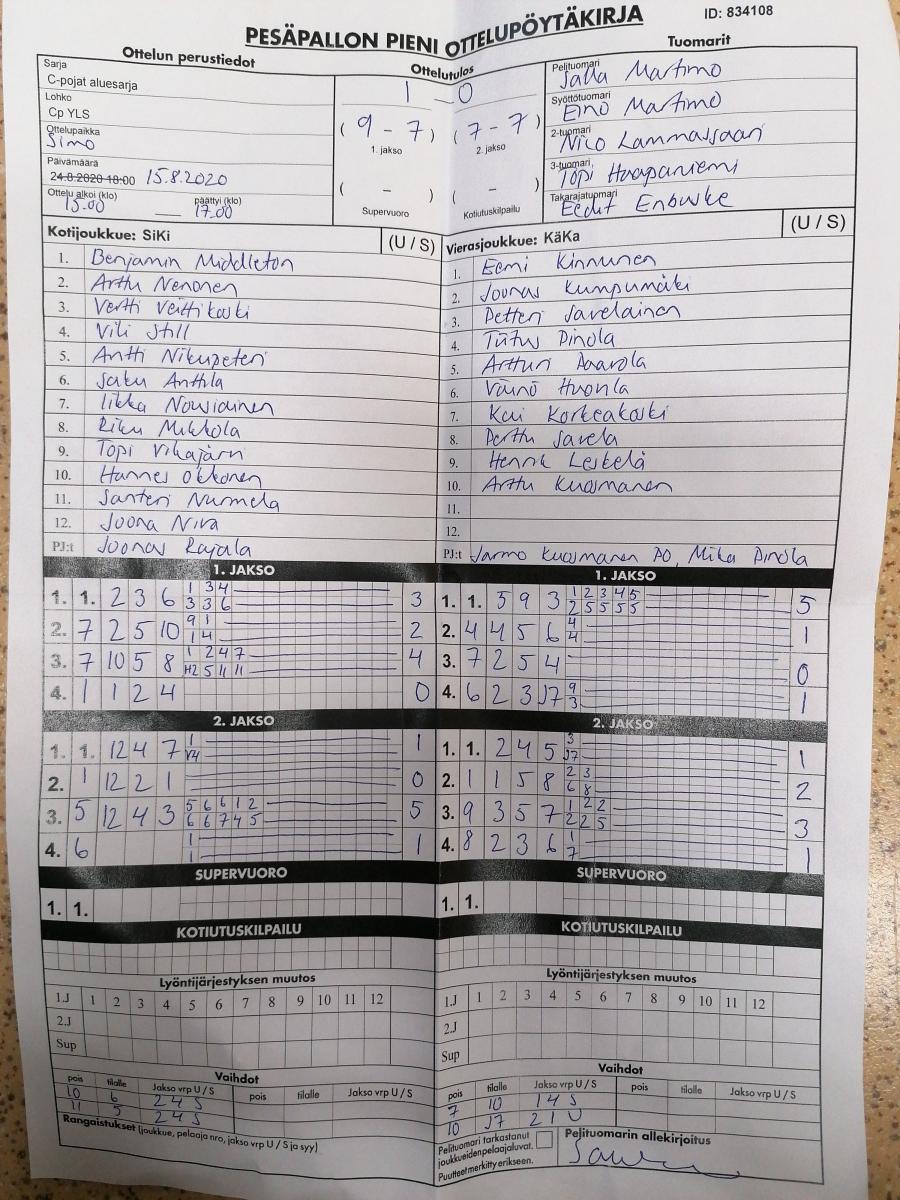 PESÄPALLON PIENI OTTELUPÖYTÄKIRJA
ID: 834108
Ottelun perustiedot
Sarja
C-pojat aluesarja
Lohko
Cp YLS
Ottelupaikka
Simo
Päivämäärä
24.8.2020 18:00 15.8.2020
Ottelu alkoi (klo) päättyi (klo)
15.00 17.00
Ottelutulos
1 - 0
(9 - 7) (7 - 7)
1. jakso 2. jakso
( - ) ( - )
Supervuoro Kotiutuskilpailu
Tuomarit
Pelituomari
Jalla Martimo
Syöttötuomari
Eino Martimo
2-tuomari
Nico Lammassaari
3-tuomari
Topi Haapaniemi
Takarajatuomari
Eedit Enbuske
Kotijoukkue: SiKi (U / S)
1. Benjamin Middleton
2. Arttu Nenonen
3. Vertti Veittikoski
4. Vili Still
5. Antti Nikupeteri
6. Saku Anttila
7. Iikka Nousiainen
8. Riku Mikkola
9. Topi Vikajärvi
10. Hannes Okkonen
11. Santeri Nurmela
12. Joona Niva
PJ:t Joonas Rajala
Vierasjoukkue: KäKa (U / S)
1. Eemi Kinnunen
2. Joonas Kumpumäki
3. Petteri Savelainen
4. Tiitus Pinola
5. Artturi Paavola
6. Väinö Huovila
7. Kai Korkeakoski
8. Perttu Savela
9. Henrik Leskelä
10. Arttu Kuosmanen
11.
12.
PJ:t Jarmo Kuosmanen PO, Mika Pinola
1. JAKSO
1. 1. 2 3 6 1 3 4 3
3 3 6
2. 7 2 5 10 9 1 2
1 4
3. 7 10 5 8 1 2 4 7 4
H2 5 11 11
4. 1 1 2 4 0
1. JAKSO
1. 1. 5 9 3 1 2 3 4 5 5
2 5 5 5 5
2. 4 4 5 6 4 1
4
3. 7 2 5 4 0
4. 6 2 3 J7 9 1
3
2. JAKSO
1. 1. 12 4 7 1 1
V4
2. 1 12 2 1 0
3. 5 12 4 3 5 6 6 1 2 5
6 6 7 4 5
4. 6 1 1
1
2. JAKSO
1. 1. 2 4 5 3 1
J7
2. 1 1 5 8 2 3 2
6 8
3. 9 3 5 7 1 2 2 3
2 2 5
4. 8 2 3 6 1 1
7
SUPERVUORO
1. 1.
SUPERVUORO
1. 1.
KOTIUTUSKILPAILU
KOTIUTUSKILPAILU
Lyöntijärjestyksen muutos
1.J 1 2 3 4 5 6 7 8 9 10 11 12
2.J
Sup
Lyöntijärjestyksen muutos
1.J 1 2 3 4 5 6 7 8 9 10 11 12
2.J
Sup
Vaihdot
pois tilalle Jakso vrp U / S pois tilalle Jakso vrp U / S
10 6 2 4 S
11 5 2 4 S
Rangaistukset (joukkue, pelaaja nro, jakso vrp U / S ja syy)
Vaihdot
pois tilalle Jakso vrp U / S pois tilalle Jakso vrp U / S
7 10 1 4 S
10 J7 2 1 U
Pelituomari tarkastanut
joukkueiden pelaajaluvat.
Puutteet merkitty erikseen.
Pelituomarin allekirjoitus